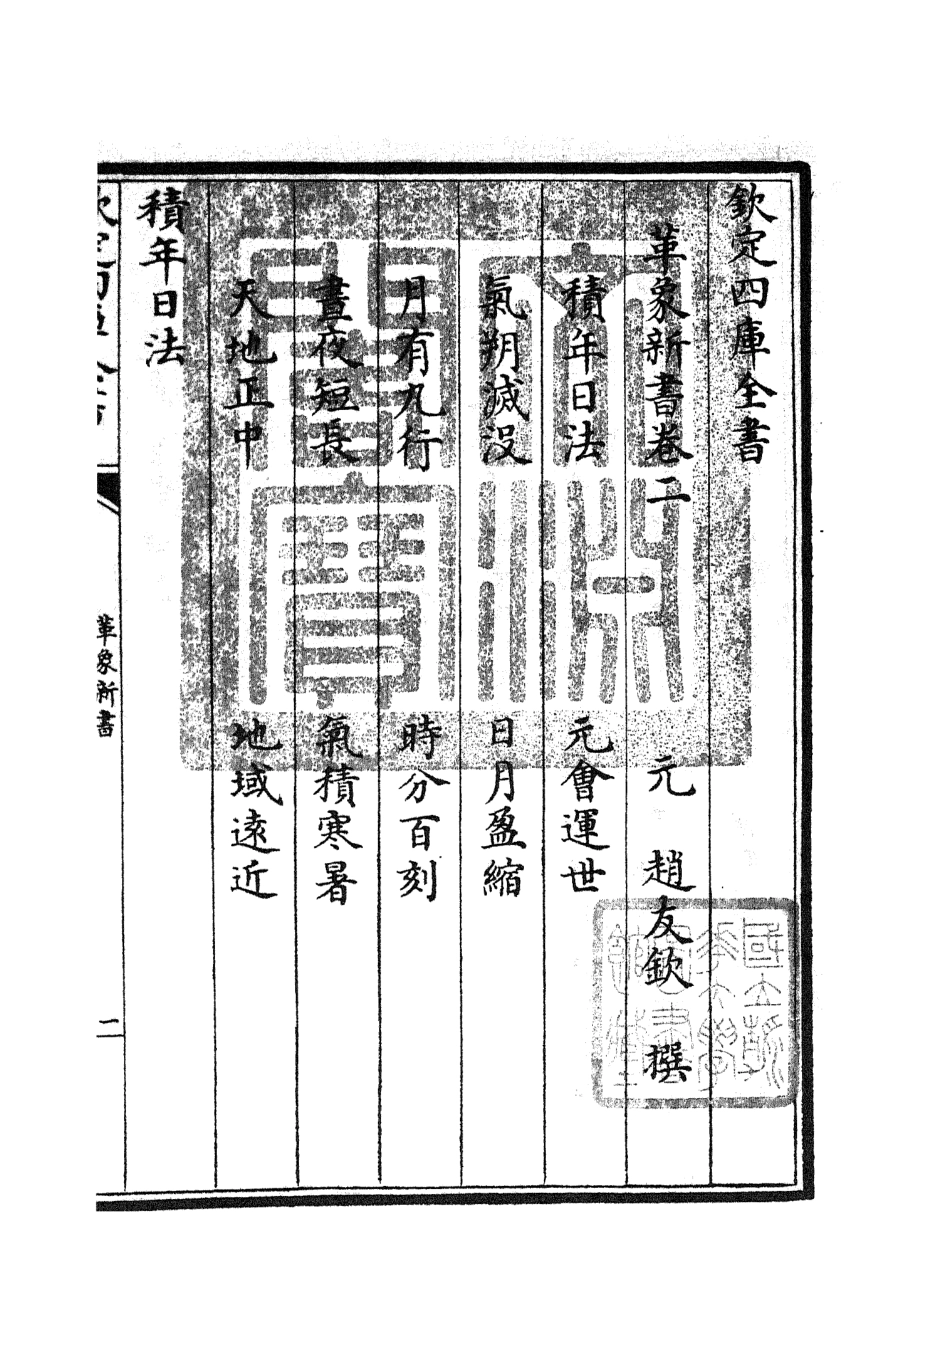 欽定四庫全書
革象新書卷二　元　趙友欽　撰
積年日法　元會運世
氣朔滅沒　日月盈縮
月有九行　時分百刻
晝夜短長　氣積寒暑
天地正中　地域遠近
積年日法
革象新書
文淵閣寶